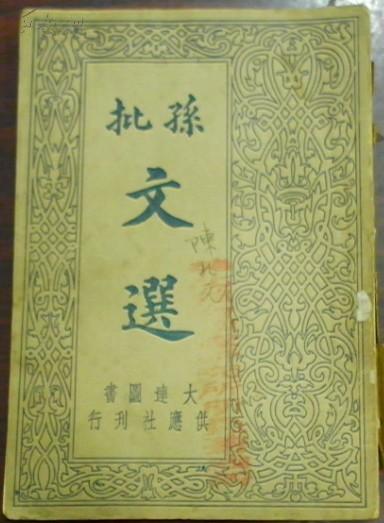 孫批
文
選
大達圖書
供應社刊行